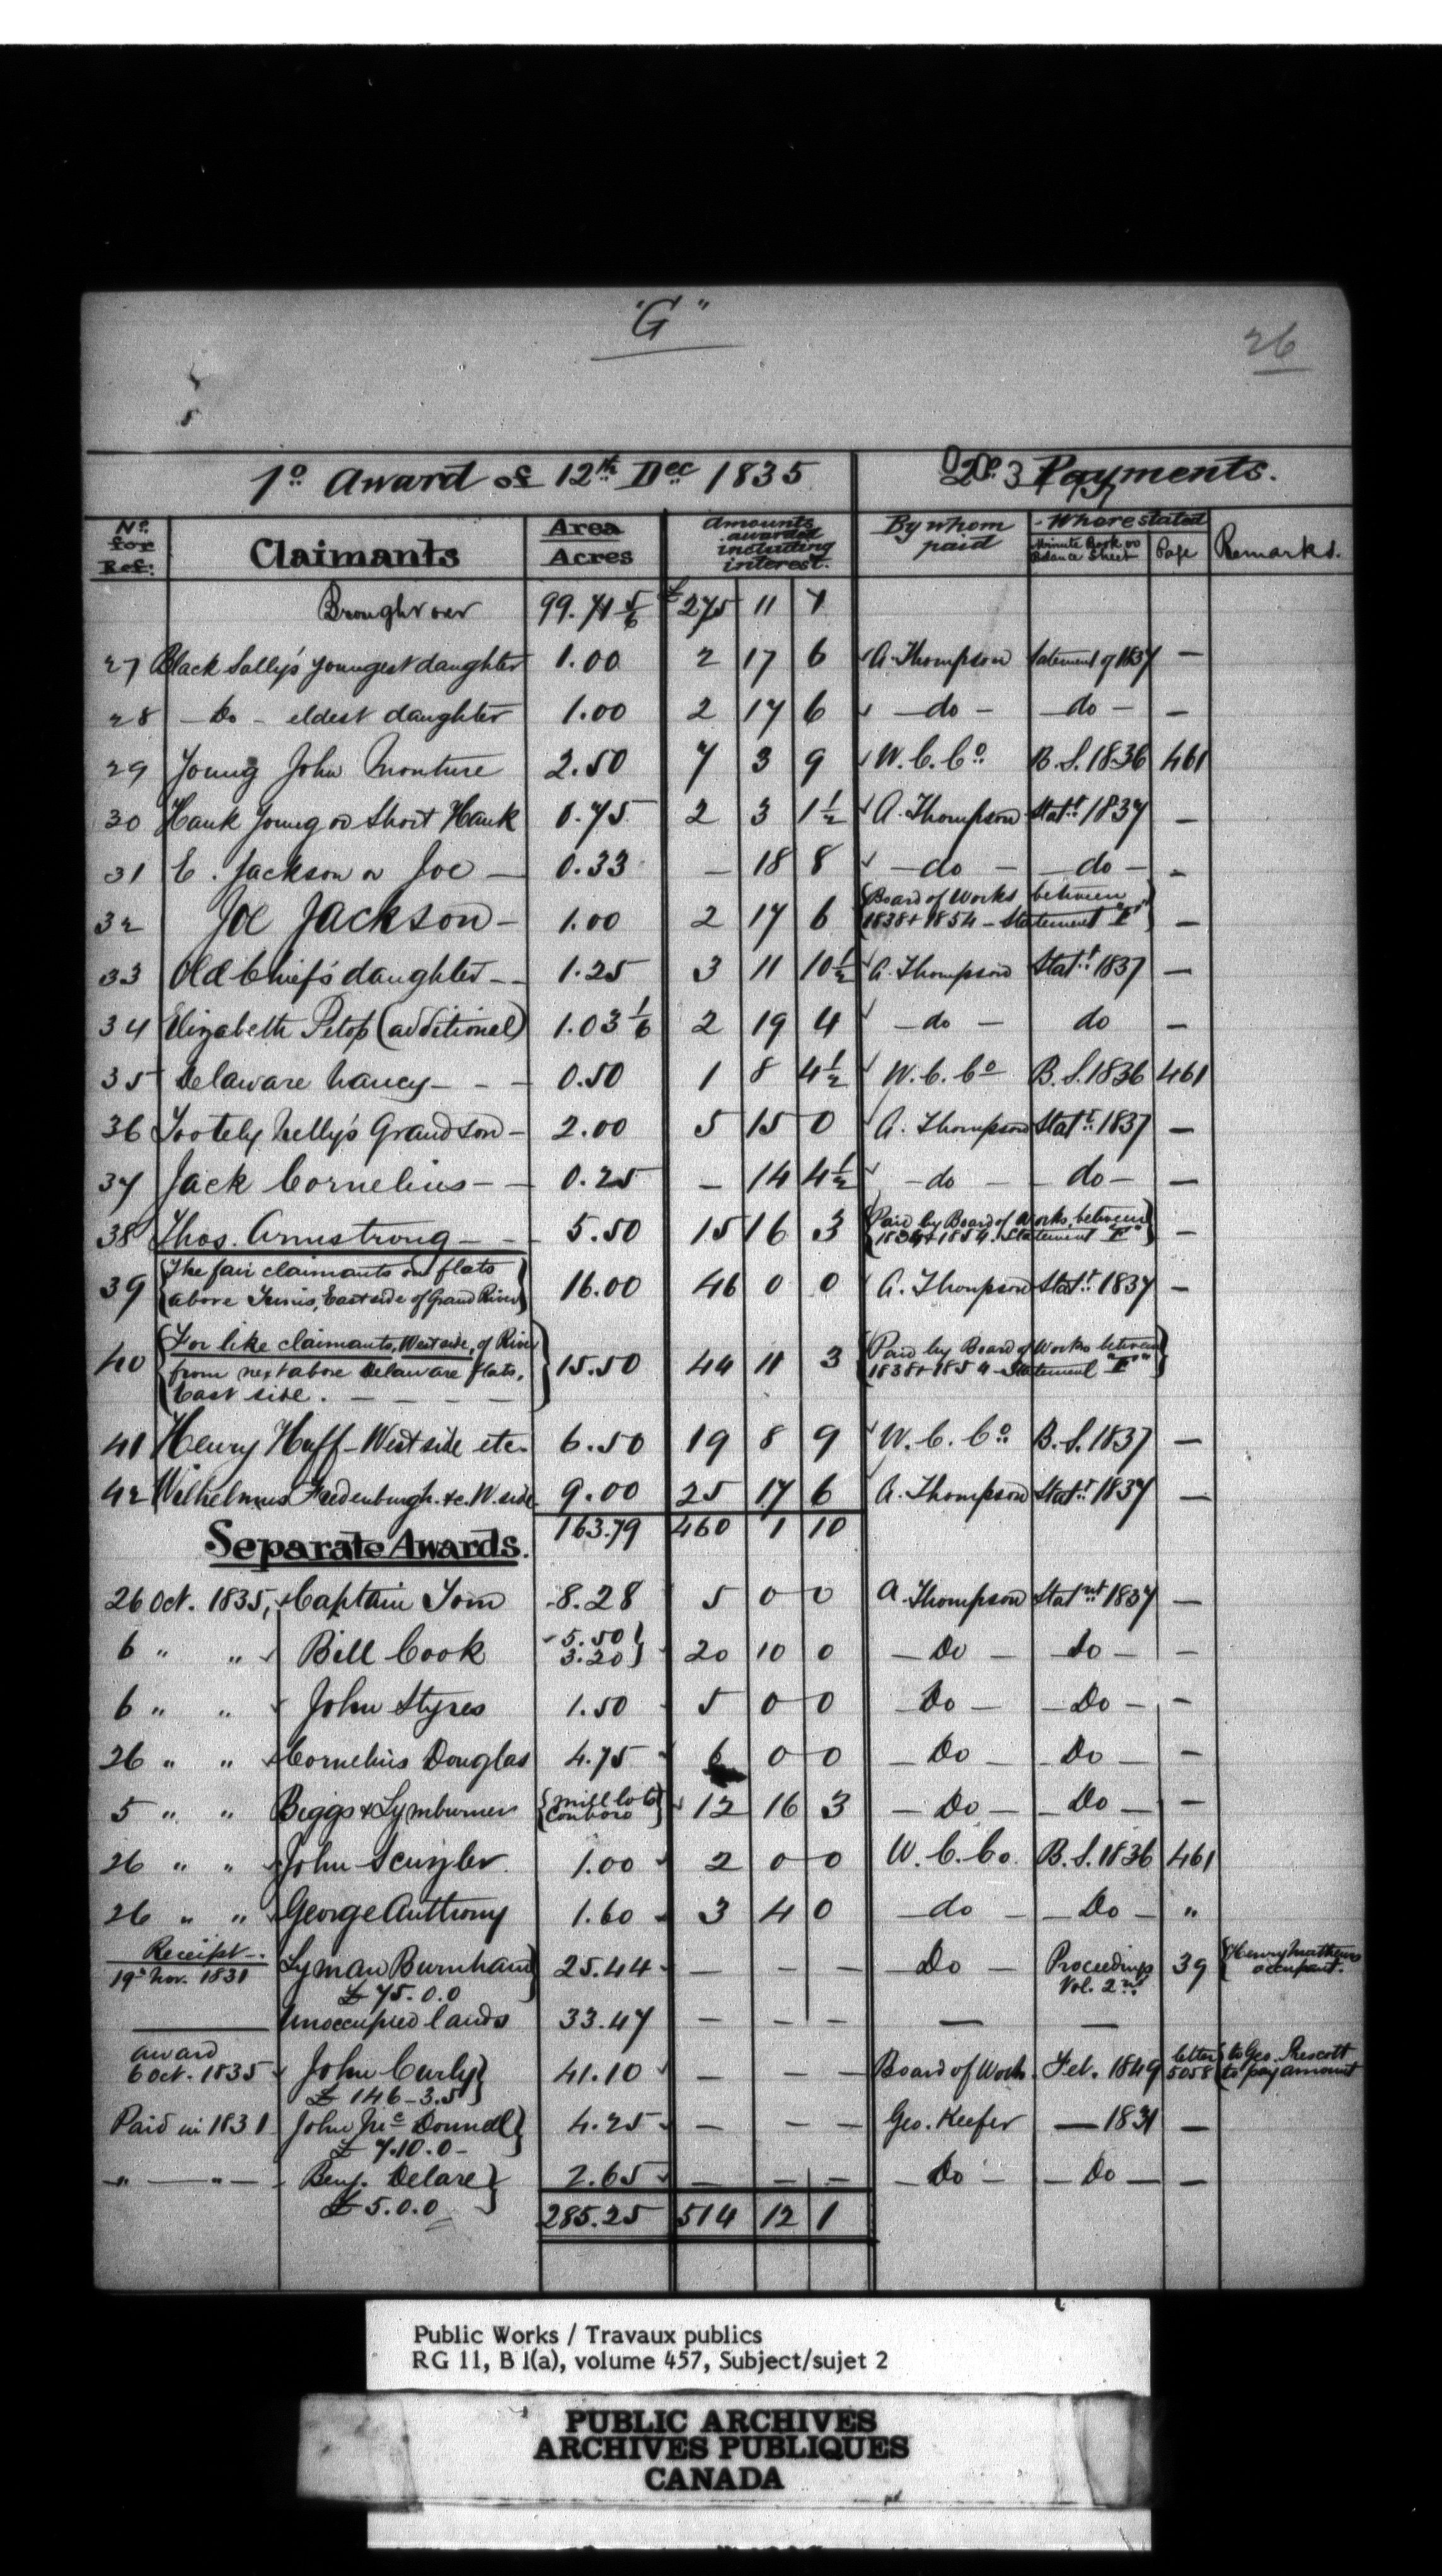 "G"
26
1o Award of 12th Decr 1835
2o Payments.
No for Ref:
Claimants
Area Acres
Amounts awarded including interest.
By whom paid
Where stated
Minute Book or Balance Sheet
Page
Remarks.
Brought over 99.71 5/6 £275 11 7
27 Black Sally's youngest daughter 1.00 2 17 6 A. Thompson Statement of 1837 —
28 — Do — eldest daughter 1.00 2 17 6 — do — — do — —
29 Young John Monture 2.50 7 3 9 W. C. Co. B. S. 1836 461
30 Hank Young or Short Hank 0.75 2 3 1½ A. Thompson Statt 1837 —
31 E. Jackson or Joe — 0.33 — 18 8 — do — — do — —
32 Joe Jackson — 1.00 2 17 6 {Board of Works, between
1838 + 1854 — Statement "F"} —
33 Old Chief's daughter — — 1.25 3 11 10½ A. Thompson Statt 1837 —
34 Elizabeth Petop (additional) 1.03 1/6 2 19 4 — do — do —
35 Delaware Nancy — — — 0.50 1 8 4½ W. C. Co B. S. 1836 461
36 Tootely Nelly's Grandson — 2.00 5 15 0 A. Thompson Statt 1837 —
37 Jack Cornelius — — 0.25 — 14 4½ — do — — do — —
38 Thos. Armstrong — — 5.50 15 16 3 {Paid by Board of Works, between
1834 + 1854. Statement "F"} —
39 {The fair claimants on flats
above Tunis, East side of Grand River} 16.00 46 0 0 A. Thompson Statt 1837 —
40 {For like claimants, West side, of River
from next above Delaware flats,
East side. — — — —} 15.50 44 11 3 {Paid by Board of Works between
1838 + 1854 — Statement "F"}
41 Henry Huff — West side etc. 6.50 19 8 9 W. C. Co. B. S. 1837 —
42 Wilhelmus Fredenburgh. &c. W. side 9.00 25 17 6 A. Thompson Statt 1837 —
163.79 460 1 10
Separate Awards.
26 Oct. 1835, Captain Tom 8.28 5 0 0 A. Thompson Statnt 1837 —
6 " " Bill Cook 5.50
3.20} 20 10 0 — Do — do — —
6 " " John Styres 1.50 5 0 0 — Do — — Do — —
26 " " Cornelius Douglas 4.75 6 0 0 — Do — Do — —
5 " " Biggs & Lymburner {Mill lot
Canboro} 12 16 3 — Do — — Do — —
26 " " John 1.00 2 0 0 W. C. Co. B. S. 1836 461
26 " " George Anthony 1.60 3 4 0 — do — — Do — "
Receipt —
19th Nov. 1831 Lyman Burnham}
£75.0.0 25.44 — — — — Do — Proceedings
Vol. 2nd 39 {Henry Mathews
occupant.
Unoccupied lands 33.47 — — — — —
Award
6 Oct. 1835 John Curly}
£146–3.5 41.10 — — — Board of Works Feb. 1849 letter
5058 {to Geo. Prescott
to pay amount
Paid in 1831 John McDonnell}
£7.10.0 — 4.25 — — — Geo. Keefer — 1831 —
" — " — Benj. Delare}
£5.0.0 2.65 — — — — Do — — Do — —
285.25 514 12 1
Public Works / Travaux publics
RG 11, B 1(a), volume 457, Subject/sujet 2
PUBLIC ARCHIVES
ARCHIVES PUBLIQUES
CANADA